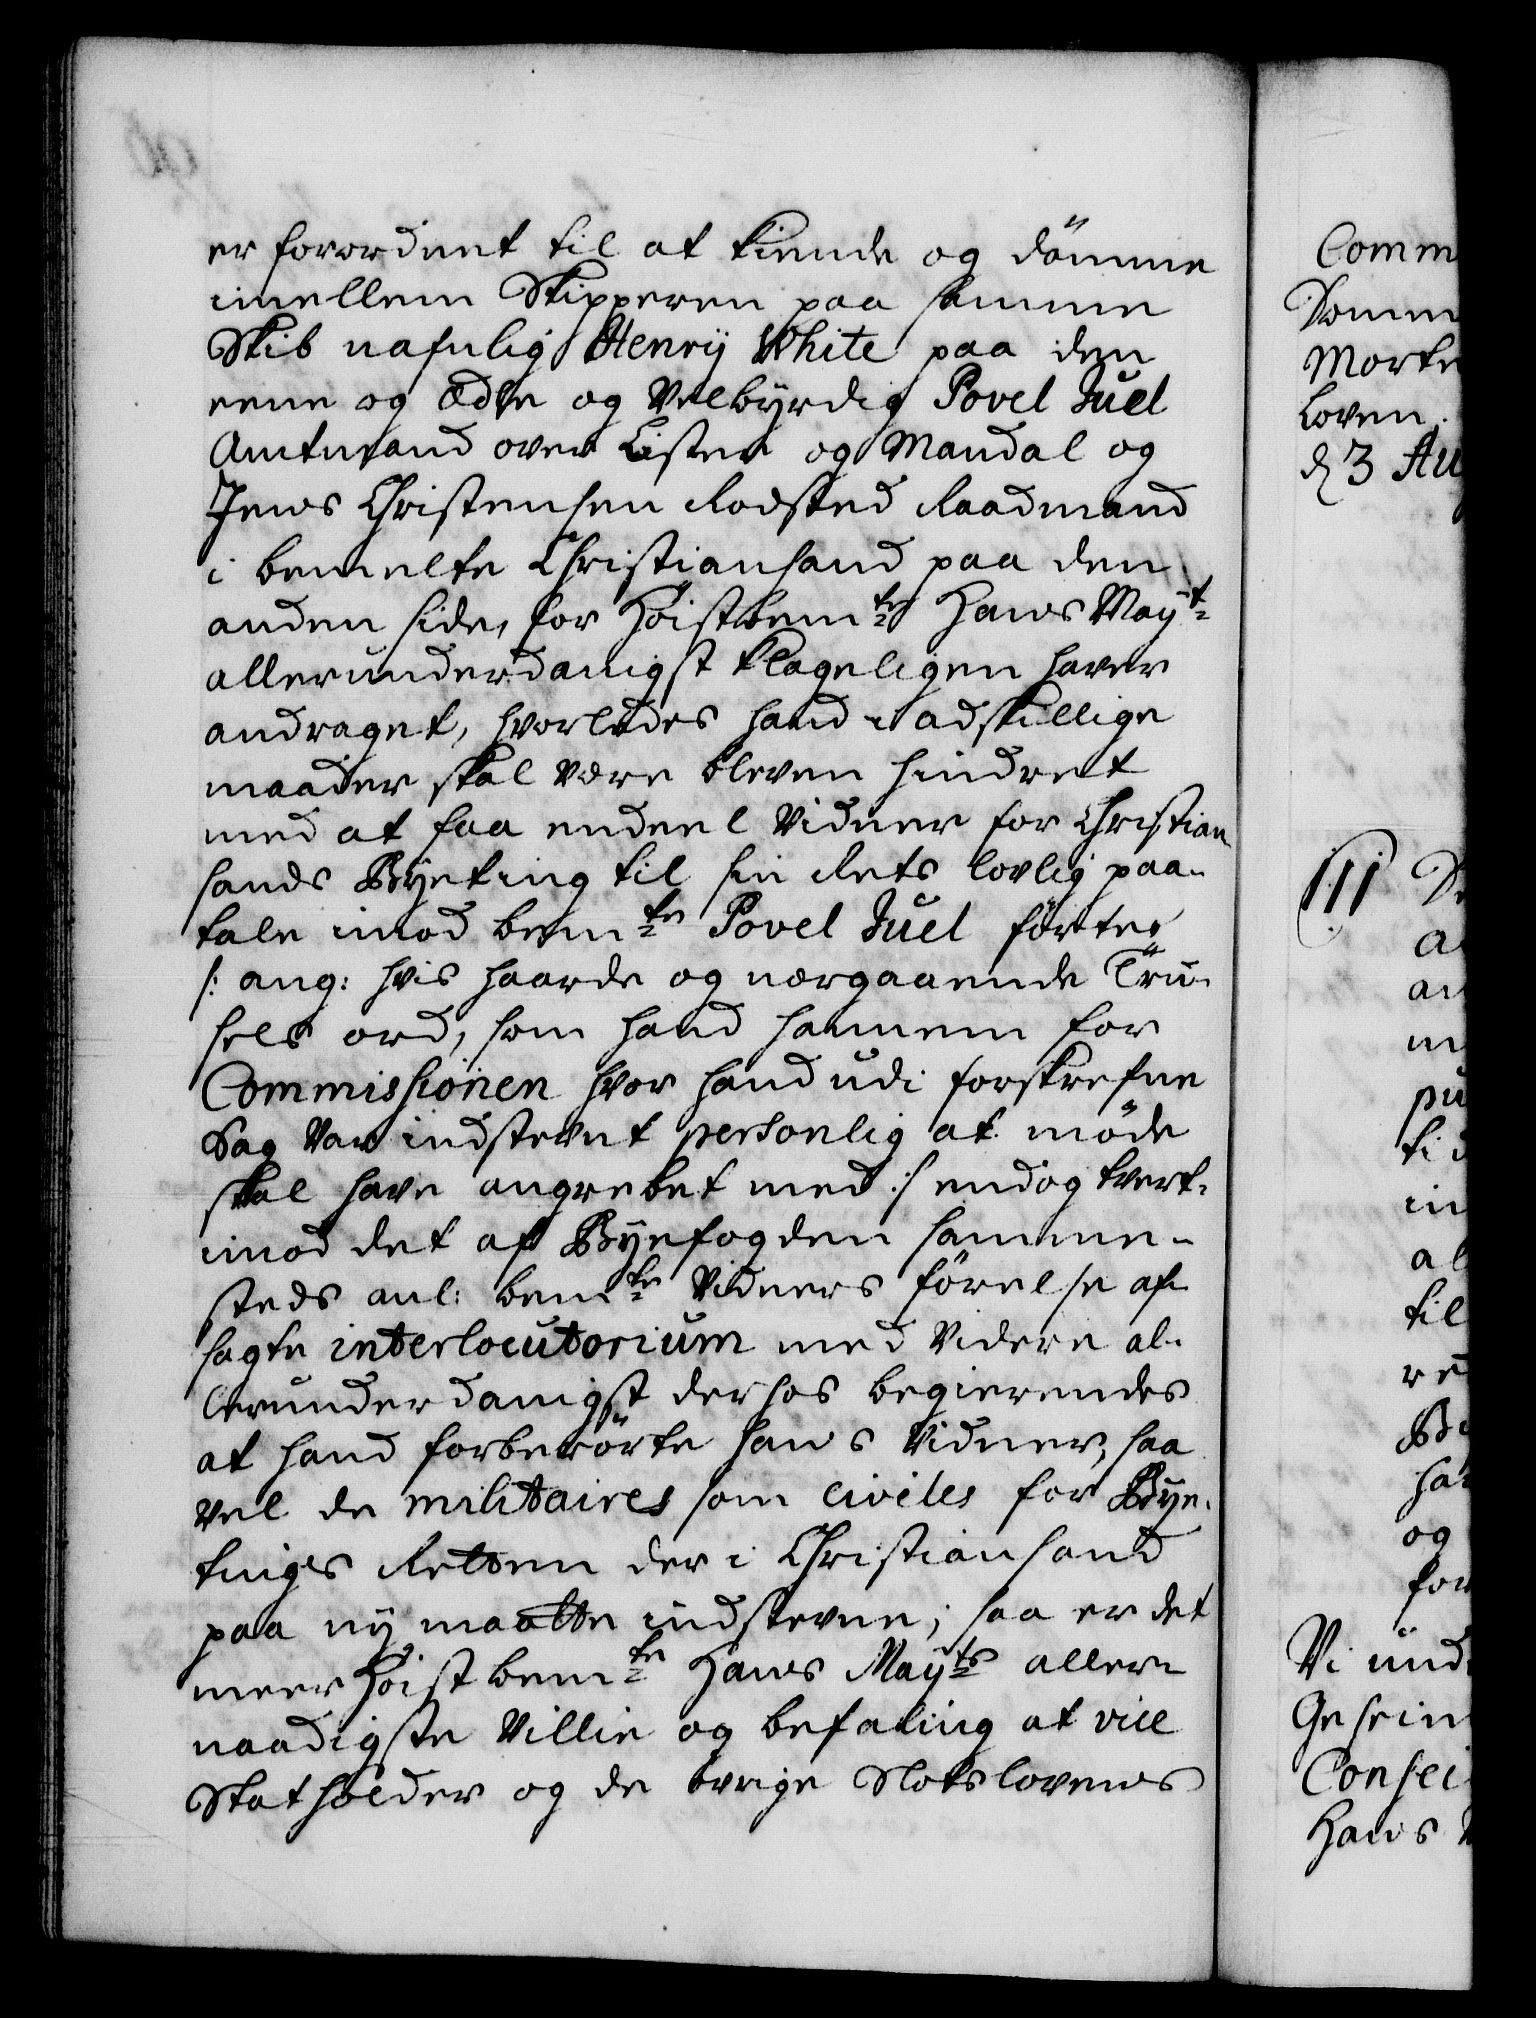 er forordnet til at kiende og dömme
imellem Skipperen paa samme
Skib nafnlig Henrÿ White paa den
eene og Ædle og Velbÿrdig Povel Juel
Amtmand over Lister og Mandal og
Jens Christensen Rodsted Raadmand
i bemelte Christiansand paa den
anden side, for Höistbemte Hans Mayt
allerunderdanigst klageligen haver
andraget, hvorledes hand i adskillige
maader skal være bleven hindret
med at faa endeel Vidner for Christian
sands Bÿeting til sin Rets lovlig paa-
tale imod bemte Povel Juel förte,
/: ang: hvis haarde og nærgaaende Trü-
sels ord, som hand hannem for
Commissionen hvor hand udi forskrefne
Sag var indstevnt personlig at möde
skal have angrebet med :/ endog tvert-
imod det af Bÿefogden samme-
steds anl: bemte Vidners förelse af-
sagte interlocutorium med videre al-
lerunderdanigst derhos begierendes
at hand forberörte hans Vidner, saa
vel de militaires som civiles for Bÿe-
tinges Retten der i Christiansand
paa nÿ maatte indstevne; saa er det
meer Höistbemte Hans Mayts aller-
naadigste Villie og befaling at vice
Statholder og de övrige Slotslovens
Comm
Domm
Morte
Loven.
d 3 Au
111
Vi und
Geheim
Consei
Hans